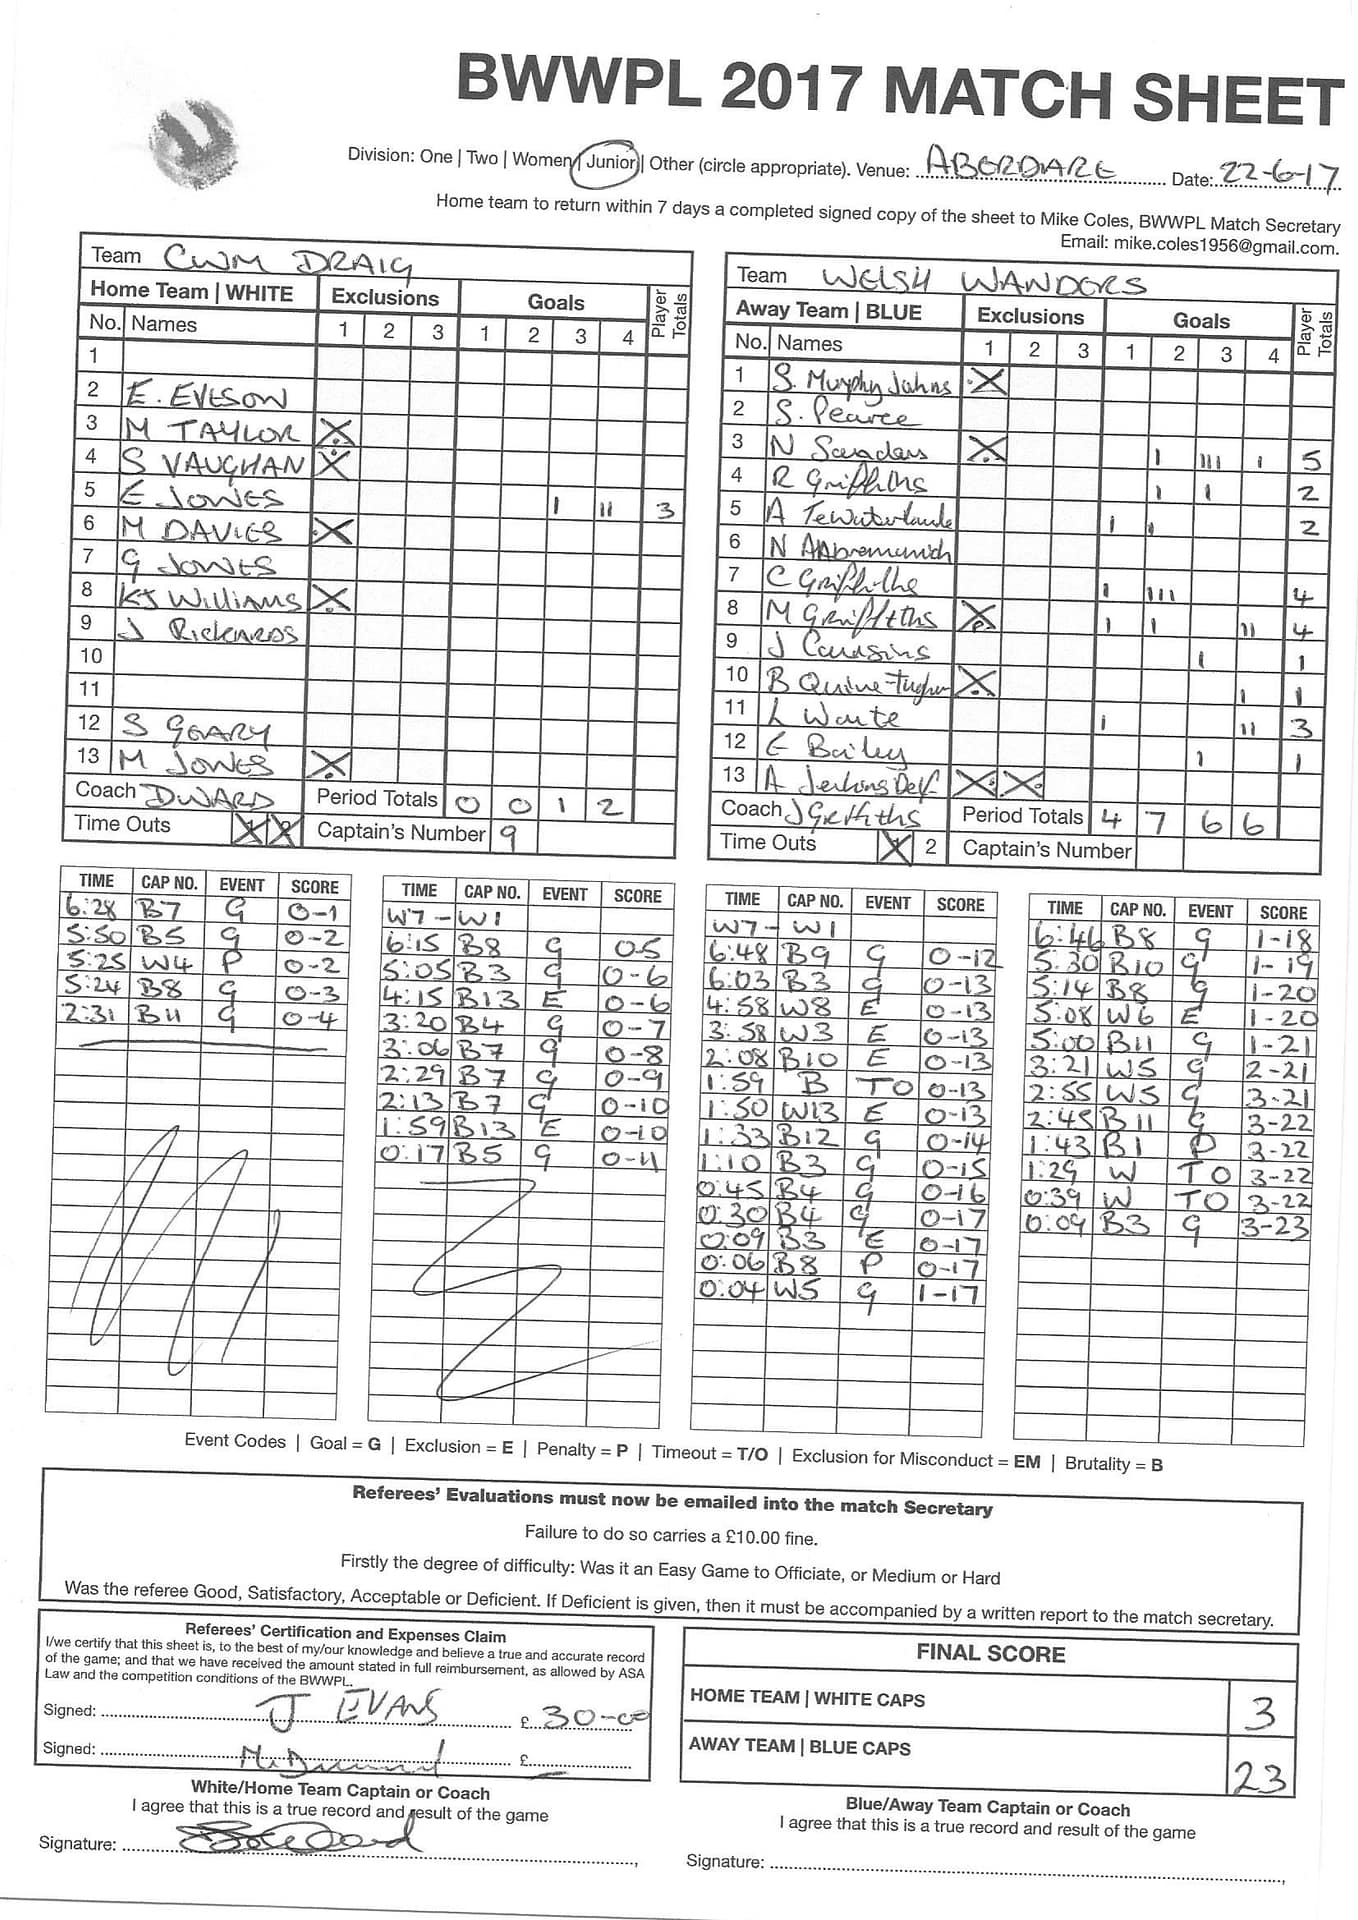 BWWPL 2017 MATCH SHEET
Division: One | Two | Women | Junior | Other (circle appropriate). Venue: ABERDARE Date: 22-6-17
Home team to return within 7 days a completed signed copy of the sheet to Mike Coles, BWWPL Match Secretary
Email: mike.coles1956@gmail.com.
Team CWM DRAIG
Home Team | WHITE Exclusions Goals Player Totals
No. Names 1 2 3 1 2 3 4
1
2 E. EVESON
3 M TAYLOR X
4 S VAUGHAN X
5 E JONES I II 3
6 M DAVIES X
7 G JONES
8 KJ WILLIAMS X
9 J RICKARDS
10
11
12 S GEARY
13 M JONES X
Coach D WARD Period Totals 0 0 1 2
Time Outs 1 2 Captain's Number 9
Team WELSH WANDERS
Away Team | BLUE Exclusions Goals Player Totals
No. Names 1 2 3 1 2 3 4
1 S. Murphy Johns X
2 S. Pearce
3 N Sanders X I III I 5
4 R Griffiths I I 2
5 A I I 2
6 N
7 C Griffiths I III 4
8 M Griffiths X I I II 4
9 J I 1
10 B Quine- X I 1
11 L Waite I II 3
12 E Bailey I 1
13 A X X
Coach J Griffiths Period Totals 4 7 6 6
Time Outs 1 2 Captain's Number
TIME CAP NO. EVENT SCORE
6:28 B7 G 0-1
5:50 B5 G 0-2
5:25 W4 P 0-2
5:24 B8 G 0-3
2:31 B11 G 0-4
TIME CAP NO. EVENT SCORE
W7-W1
6:15 B8 G 05
5:05 B3 G 0-6
4:15 B13 E 0-6
3:20 B4 G 0-7
3:06 B7 G 0-8
2:29 B7 G 0-9
2:13 B7 G 0-10
1:59 B13 E 0-10
0:17 B5 G 0-11
TIME CAP NO. EVENT SCORE
W7-W1
6:48 B9 G 0-12
6:03 B3 G 0-13
4:58 W8 E 0-13
3:58 W3 E 0-13
2:08 B10 E 0-13
1:59 B TO 0-13
1:50 W13 E 0-13
1:33 B12 G 0-14
1:10 B3 G 0-15
0:45 B4 G 0-16
0:30 B4 G 0-17
0:09 B3 E 0-17
0:06 B8 P 0-17
0:04 W5 G 1-17
TIME CAP NO. EVENT SCORE
6:46 B8 G 1-18
5:30 B10 G 1-19
5:14 B8 G 1-20
5:08 W6 E 1-20
5:00 B11 G 1-21
3:21 W5 G 2-21
2:55 W5 G 3-21
2:45 B11 G 3-22
1:43 B1 P 3-22
1:29 W TO 3-22
0:39 W TO 3-22
0:09 B3 G 3-23
Event Codes | Goal = G | Exclusion = E | Penalty = P | Timeout = T/O | Exclusion for Misconduct = EM | Brutality = B
Referees' Evaluations must now be emailed into the match Secretary
Failure to do so carries a £10.00 fine.
Firstly the degree of difficulty: Was it an Easy Game to Officiate, or Medium or Hard
Was the referee Good, Satisfactory, Acceptable or Deficient. If Deficient is given, then it must be accompanied by a written report to the match secretary.
Referees' Certification and Expenses Claim
I/we certify that this sheet is, to the best of my/our knowledge and believe a true and accurate record
of the game; and that we have received the amount stated in full reimbursement, as allowed by ASA
Law and the competition conditions of the BWWPL.
Signed: J EVANS £ 30-00
Signed: £ -
White/Home Team Captain or Coach
I agree that this is a true record and result of the game
Signature:
FINAL SCORE
HOME TEAM | WHITE CAPS 3
AWAY TEAM | BLUE CAPS 23
Blue/Away Team Captain or Coach
I agree that this is a true record and result of the game
Signature: